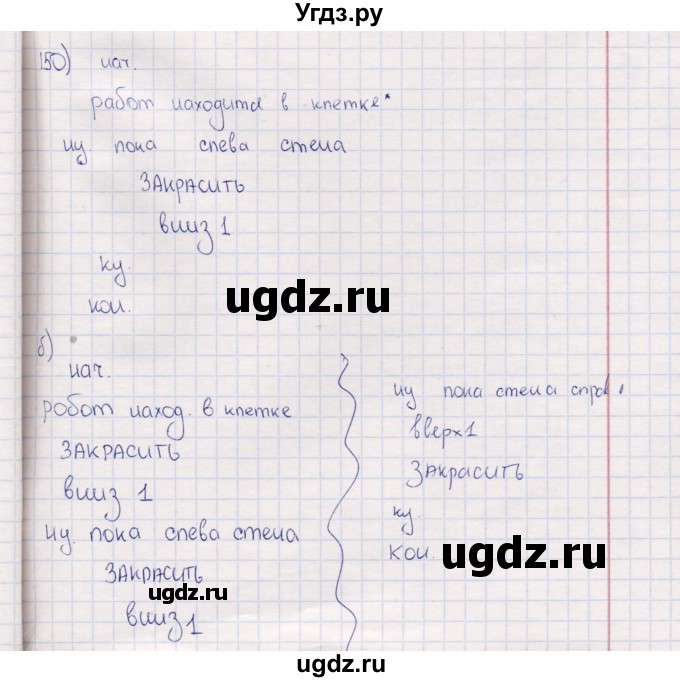 Угдз.ру
150) нач.
работ находитя в клетке*
нц. пока слева стена
ЗАКРАСИТЬ
вниз 1
кц.
кон.
ugdz.ru
б)
нач.
робот наход. в клетке
ЗАКРАСИТЬ
вниз 1
нц. пока слева стена
ЗАКРАСИТЬ
вниз 1
нц пока стена справ.
вверх 1
ЗАКРАСИТЬ
кц.
кон
ugdz.ru
ugdz.ru